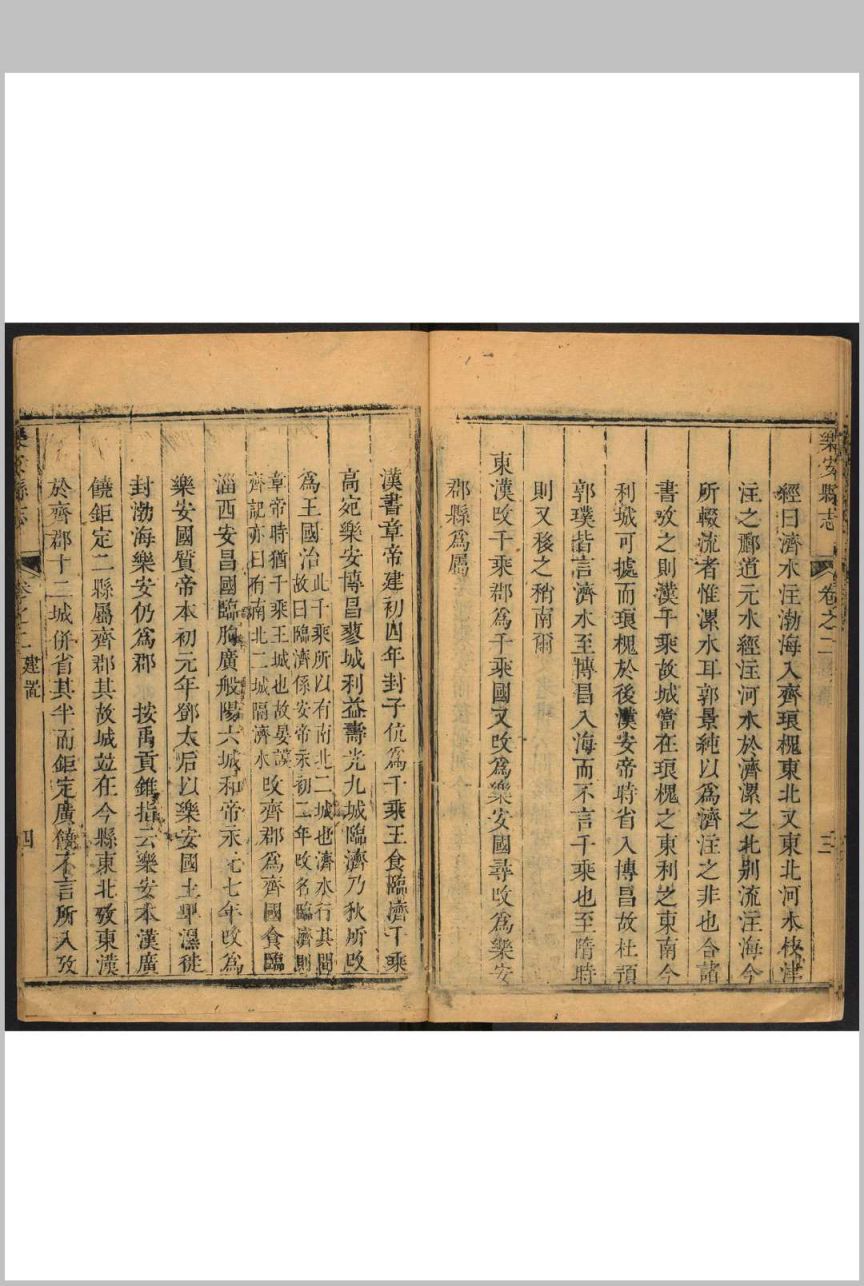 樂安縣志 卷之二 三
經曰濟水注渤海入齊琅槐東北又東北河水枝津
注之酈道元水經注河水於濟漯之北别流注海今
所輟流者惟漯水耳郭景純以為濟注之非也合諸
書攷之則漢千乘故城當在琅槐之東利之東南今
利城可㨿而琅槐於後漢安帝時省入博昌故杜預
郭璞皆言濟水至博昌入海而不言千乘也至隋時
則又移之稍南爾
東漢改千乘郡為千乘國又改為樂安國尋改為樂安
郡縣為屬
漢書章帝建初四年封子伉爲千乘王食臨濟千乘
高宛樂安博昌蓼城利益壽光九城臨濟乃狄所改
爲王國治
此千乘所以有南北二城也濟水行其間
故曰臨濟係安帝永初二年改名臨濟則
章帝時猶千乘王城也故晏謨
齊記亦曰有南北二城隔濟水
改齊郡爲齊國食臨
淄西安昌國臨朐廣般陽六城和帝永元七年改爲
樂安國質帝本初元年鄧太后以樂安國土卑濕徙
封渤海樂安仍爲郡 按禹貢錐指云樂安本漢廣
饒鉅定二縣屬齊郡其故城竝在今縣東北攷東漢
於齊郡十二城併省其半而鉅定廣饒不言所入攷
樂安縣志 卷之二 建置 四